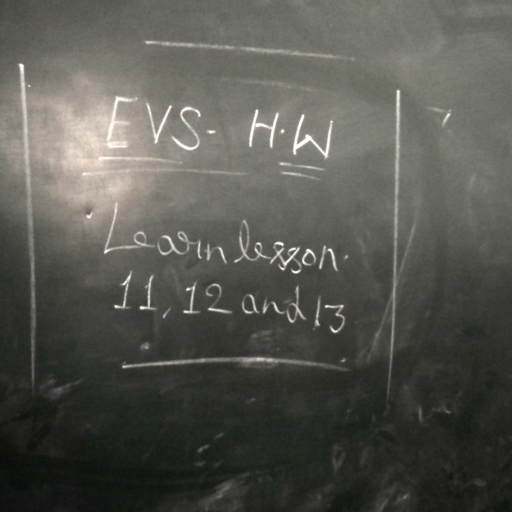 EVS- H.W
Learn lesson.
11, 12 and 13